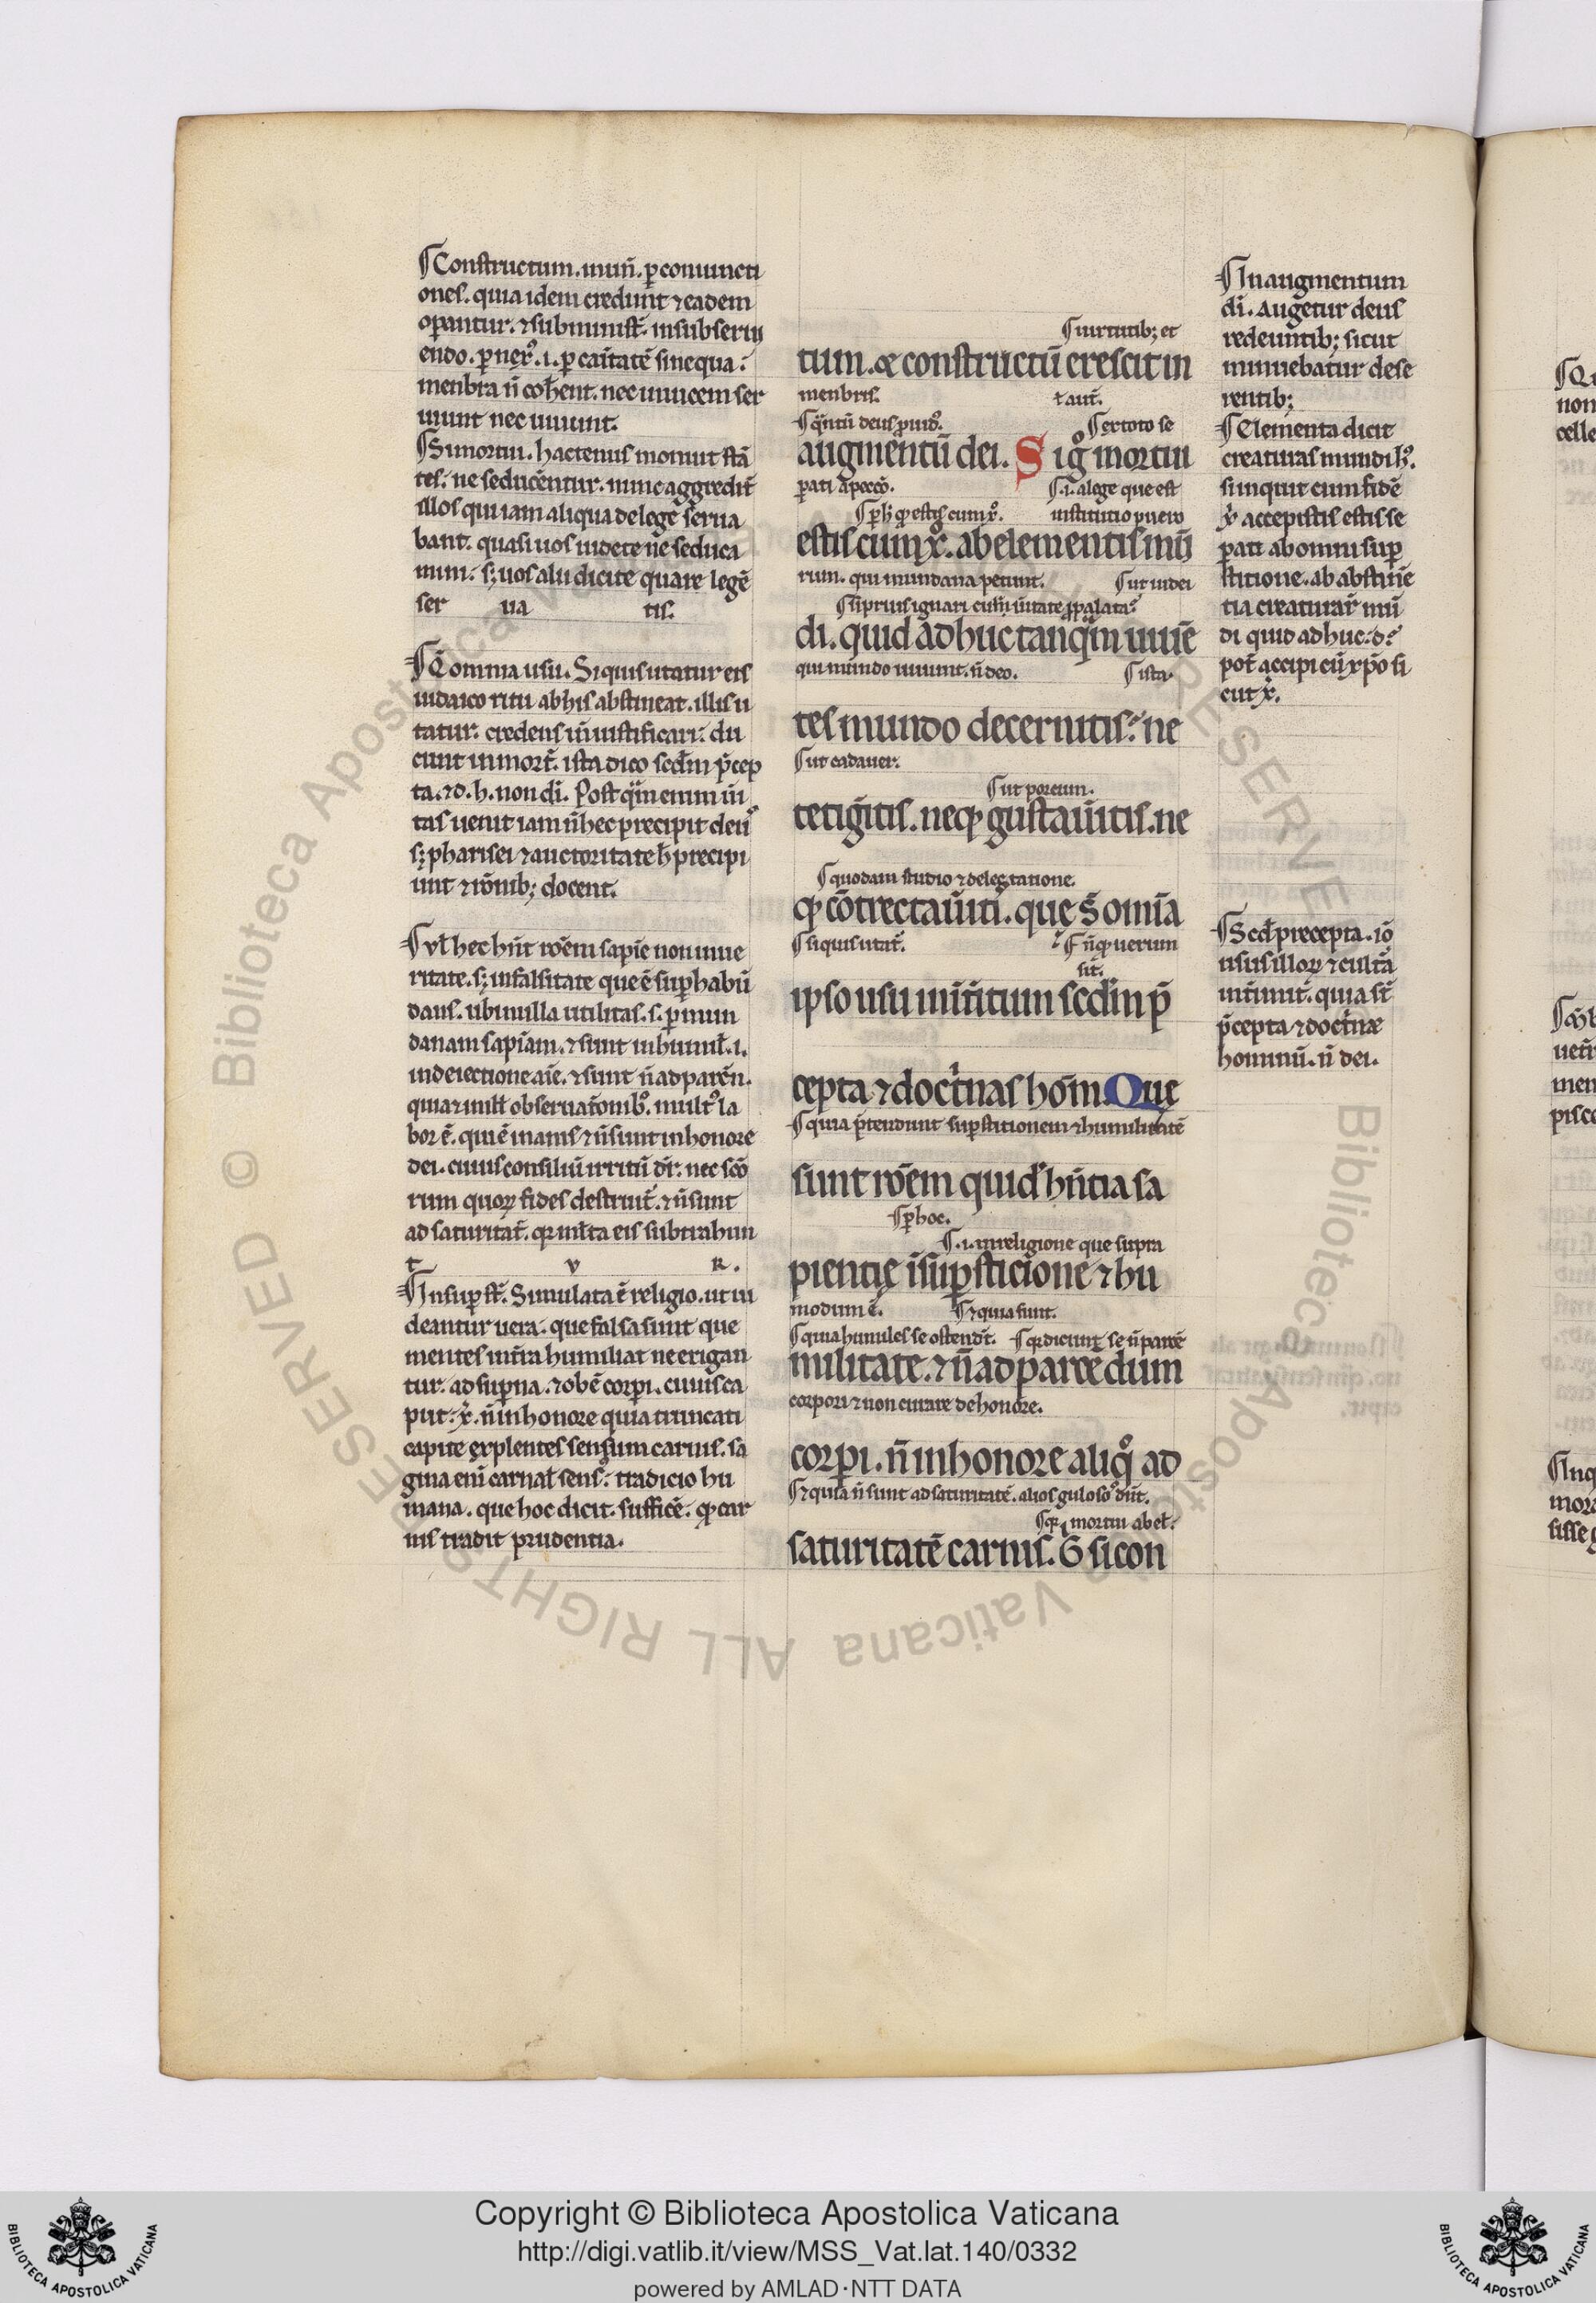 ¶Constructum. muñ. ꝑ coniuncti
ones. quia idem credunt ⁊ eadem
oꝑantur. ⁊ subminist̃. in subserui
endo. ꝑ nexꝰ. i. ꝑ caritatẽ sine qua
menbra ñ coh̃ent. nec inuicem ser
uiunt nec uiuunt.
¶Si mortui. hactenus monuit stã
tes. ne seducẽntur. nunc aggredit̃
illos qui iam aliqua de lege serua
bant. quasi uos uidete ne seduca
mini. sꝫ uos alii dicite quare legẽ
ser ua tis.
omnia usu. Siquis utatur eis
iudaico ritu ab his abstineat. illis u
tatur. credens iñ iustificari. du
cunt in mort̃. ista dico scđm p̃cep
ta. ⁊ d. h. non di. Post q̃m enim ũi
tas uenit iam ñ hec precipit deuˢ
sꝫ pharisei ⁊ auctoritate h̃ precipi
unt ⁊ rõnibꝫ docent.
¶Vl̃ hec hñt rõem sapiẽ non in ue
ritate. sꝫ in falsitate que ẽ suꝑhabũ
dans. ubi nulla utilitas. s. ꝑ mun
danam sapiam. ⁊ sunt in humil̃. i.
in deiectione aĩe. ⁊ sunt ñ ad parcẽn.
quia ⁊ in ill̃ obseruat̃onibꝰ. multꝰ la
bor ẽ. qui ẽ inanis ⁊ ñ sunt in honore
dei. cuius consiliũ irritũ dr̃. nec scõ
rum quoꝝ fides destruit̃. ⁊ ñ sunt
ad saturitat̃. qꝛ ml̃ta eis subtrahun
t v R.
¶In suꝑst̃. Simulata ẽ religio. ut ui
deantur uera. que falsa sunt que
mentes int̃ra humiliat ne erigan
tur. ad suꝑna. ⁊ obẽ corꝑi. cuius ca
put. x̃. ñ in honore quia truncati
capite explentes sensum carnis. sa
gina eni carnal̃ sensꝰ. tradicio hu
mana. que hoc dicit. sufficẽ. qꝫ car
nis tradit prudentia.
¶uirtutibꝫ et
tum. & constructũ crescit in
menbris.
¶q̃ntũ deus ꝓuidꝰ.
¶ex toto se
augmentũ dei. Si gͦ mortui
ꝑati a peccõ.
¶.i. a lege que est
¶ꝑ h̃ qꝫ estis cum x̊.
institutio puero
estis cum x̊. ab elementis mũ
rum. qui mundana petunt.
¶ut iudei
¶si prius ignari cum ũitate ꝓpalata
di. quid adhuc tanq̃m uiuẽ
qui mundo uiuunt. ñ deo.
¶ista.
tes mundo decernitis. ne
¶ut cadauer.
¶ut porcum.
tetig̃itis. neqꝫ gustaũitis. ne
¶quodam studio ⁊ delectatione.
qꝫ cõtrectaũiti. que s̃ omĩa
¶siquis utat̃.
¶ñ qꝫ uerum
sit̃.
ipso usu int̃itum scđm p̃
cepta ⁊ doct̃nas hom̃. Que
¶quia p̃tendunt suꝑstitionem ⁊ humilitatẽ
sunt rõem quidˢ hñtia sa
¶ꝑ hoc.
¶.i. in religione que supra
pientię ĩ suꝑsticione ⁊ hu
modum ẽ.
¶⁊ quia sunt.
¶quia humiles se ostendt̃.
¶qꝛ dicunt se ñ parcẽ
militate. ⁊ ñ ad parcẽdum
corpori ⁊ non curare de honore.
corꝑi. ñ in honore aliq̊ ad
¶⁊ quia ñ sunt ad saturitatẽ. alios gulosoˢ dñt.
¶qꝛ mortui ab el̃.
saturitatẽ carnis. G̃ si con
¶In augmentum
di. Augetur deus
redeuntibꝫ sicut
minuebatur dese
rentibꝫ
¶Elementa dicit
creaturas mundi hꝰ.
si inquit cum fidẽ
x̃ accepistis estis se
ꝑati ab omni suꝑ
stitione. ab abstinẽ
tia creaturar̃ mũ
di quid adhuc. d.
pot̃ accipi cũ xp̃o si
cut x̃.
¶Scđ precepta. iõ
usus illoꝝ ⁊ cultꝰ
int̃imit̃. quia st̃
p̃cepta ⁊ doct̃næ
hominũ. ñ dei.
Copyright © Biblioteca Apostolica Vaticana
http://digi.vatlib.it/view/MSS_Vat.lat.140/0332
powered by AMLAD·NTT DATA